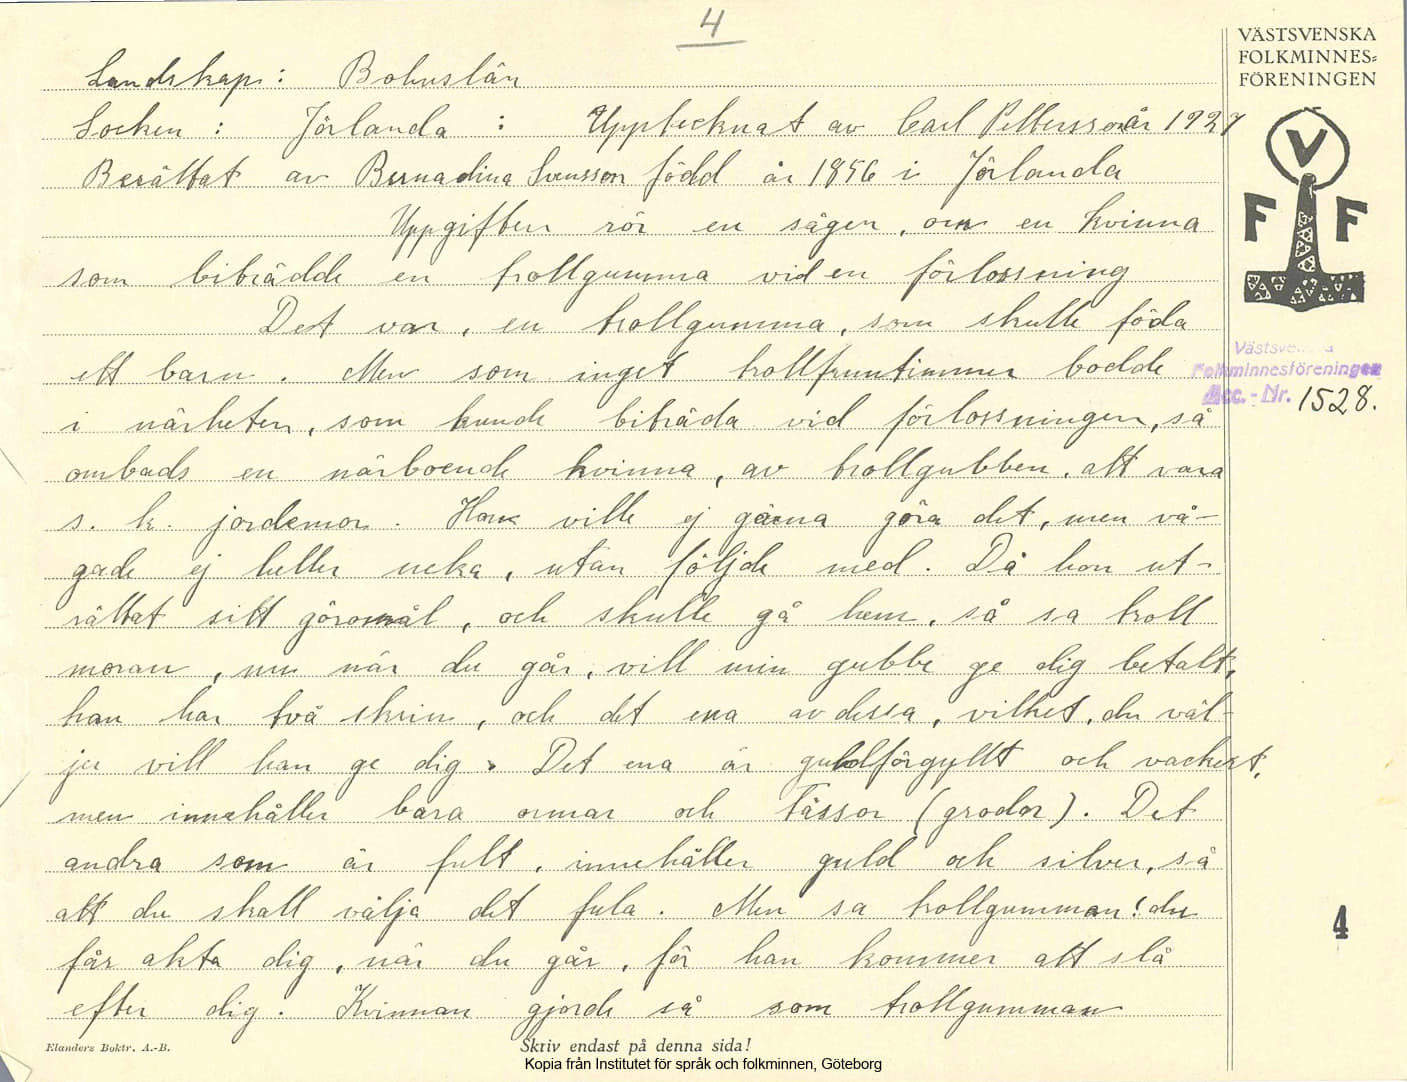 4
VÄSTSVENSKA
FOLKMINNES=
FÖRENINGEN
V
F F
Landskap: Bohuslän
Socken : Jörlanda : Upptecknat av Carl Pettersson år 1927
Berättat av Bernadina Svensson född år 1856 i Jörlanda
Uppgiften rör en sägen, om en kvinna
som biträdde en trollgumma vid en förlossning
Det var, en trollgumma, som skulle föda
ett barn. Men som inget trollfruntimmer bodde
i närheten, som kunde biträda vid förlossningen, så
ombads en närboende kvinna, av trollgubben, att vara
s. k. jordemor. Hon ville ej gärna göra det, men vå-
gade ej heller neka, utan följde med. Då hon ut-
rättat sitt göromål, och skulle gå hem, så sa troll
moran, nu när du går, vill min gubbe ge dig betalt,
han har två skrin, och det ena av dessa, vilket, du väl-
jer vill han ge dig. Det ena är guldförgyllt och vackert,
men innehåller bara ormar och Tåssor (grodor). Det
andra som är fult, innehåller guld och silver, så
att du skall välja det fula. Men sa trollgumman! du
får akta dig, när du går, för han kommer att slå
efter dig. Kvinnan gjorde så som trollgumman
Västsvenska
Folkminnesföreningen
Acc.-Nr. 1528.
4
Elanders Boktr. A.-B.
Skriv endast på denna sida!
Kopia från Institutet för språk och folkminnen, Göteborg